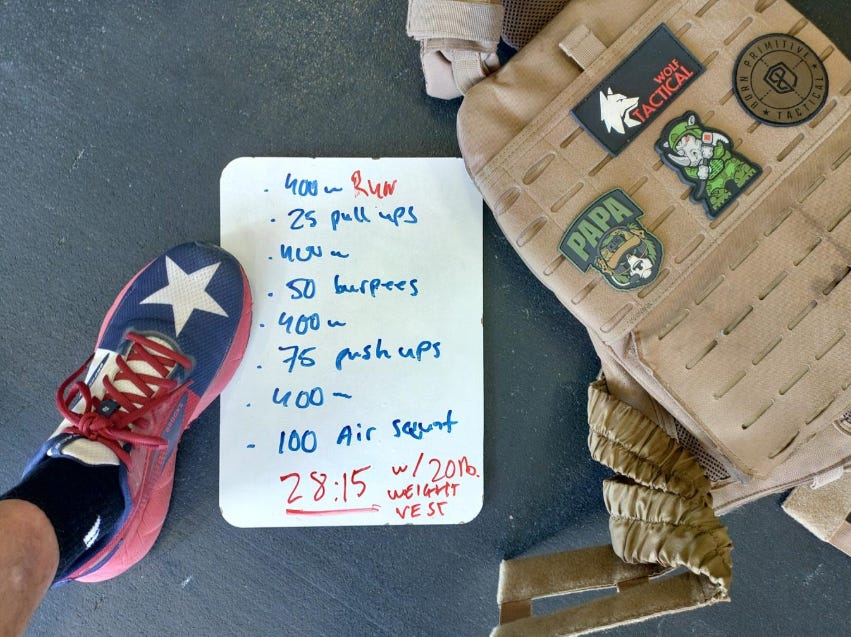 · 400m Run
· 25 pull ups
· 400m
· 50 burpees
· 400m
· 75 push ups
· 400m
· 100 Air squat
28:15 w/ 20 lb.
WEIGHT
VEST
WOLF
TACTICAL
BORN PRIMITIVE
TACTICAL
PAPA